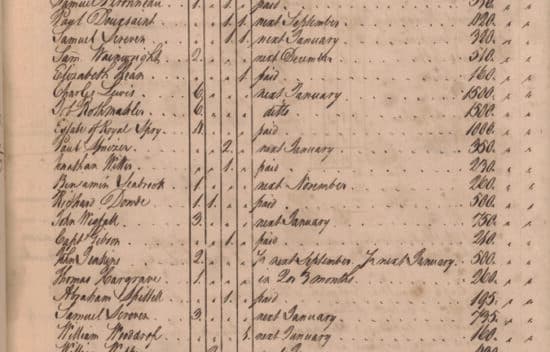 Samuel Peronneau . . . 1. " " paid 370. " "
Capt Toussaint . . . " 1 1 next September 420. " "
Samuel Screven . . . " 1 1 next January 300. " "
Sam. Wainwright . . . 2. " " next December 510. " "
Elizabeth Bean . . . " " 1 paid 160. " "
Charles Lewis . . . 6. " " next January 1500. " "
Rothmahler . . . 6. " " ditto 1500. " "
Estate of Royal Spry . . . 4. " " paid 1000. " "
Paul . . . " 2. " next January 350. " "
Jonathan Witter . . . " 1. " paid 230. " "
Benjamin Seabrook . . . 1. " " next November 260. " "
Richard . . . 1. 1. " paid 500. " "
John Wigfall . . . 3. " " next January 750. " "
Capt Gibson . . . " 1. " paid 240. " "
John Jenkins . . . 2. " " ½ next September ½ next January 500. " "
Thomas Hargrave . . . 1. " " in 2 or 3 months 260. " "
Abraham . . . " 1. " paid 195. " "
Samuel Screven . . . 3. " " next January 735. " "
William Wooddrop . . . " " 1. next January 160. " "
William